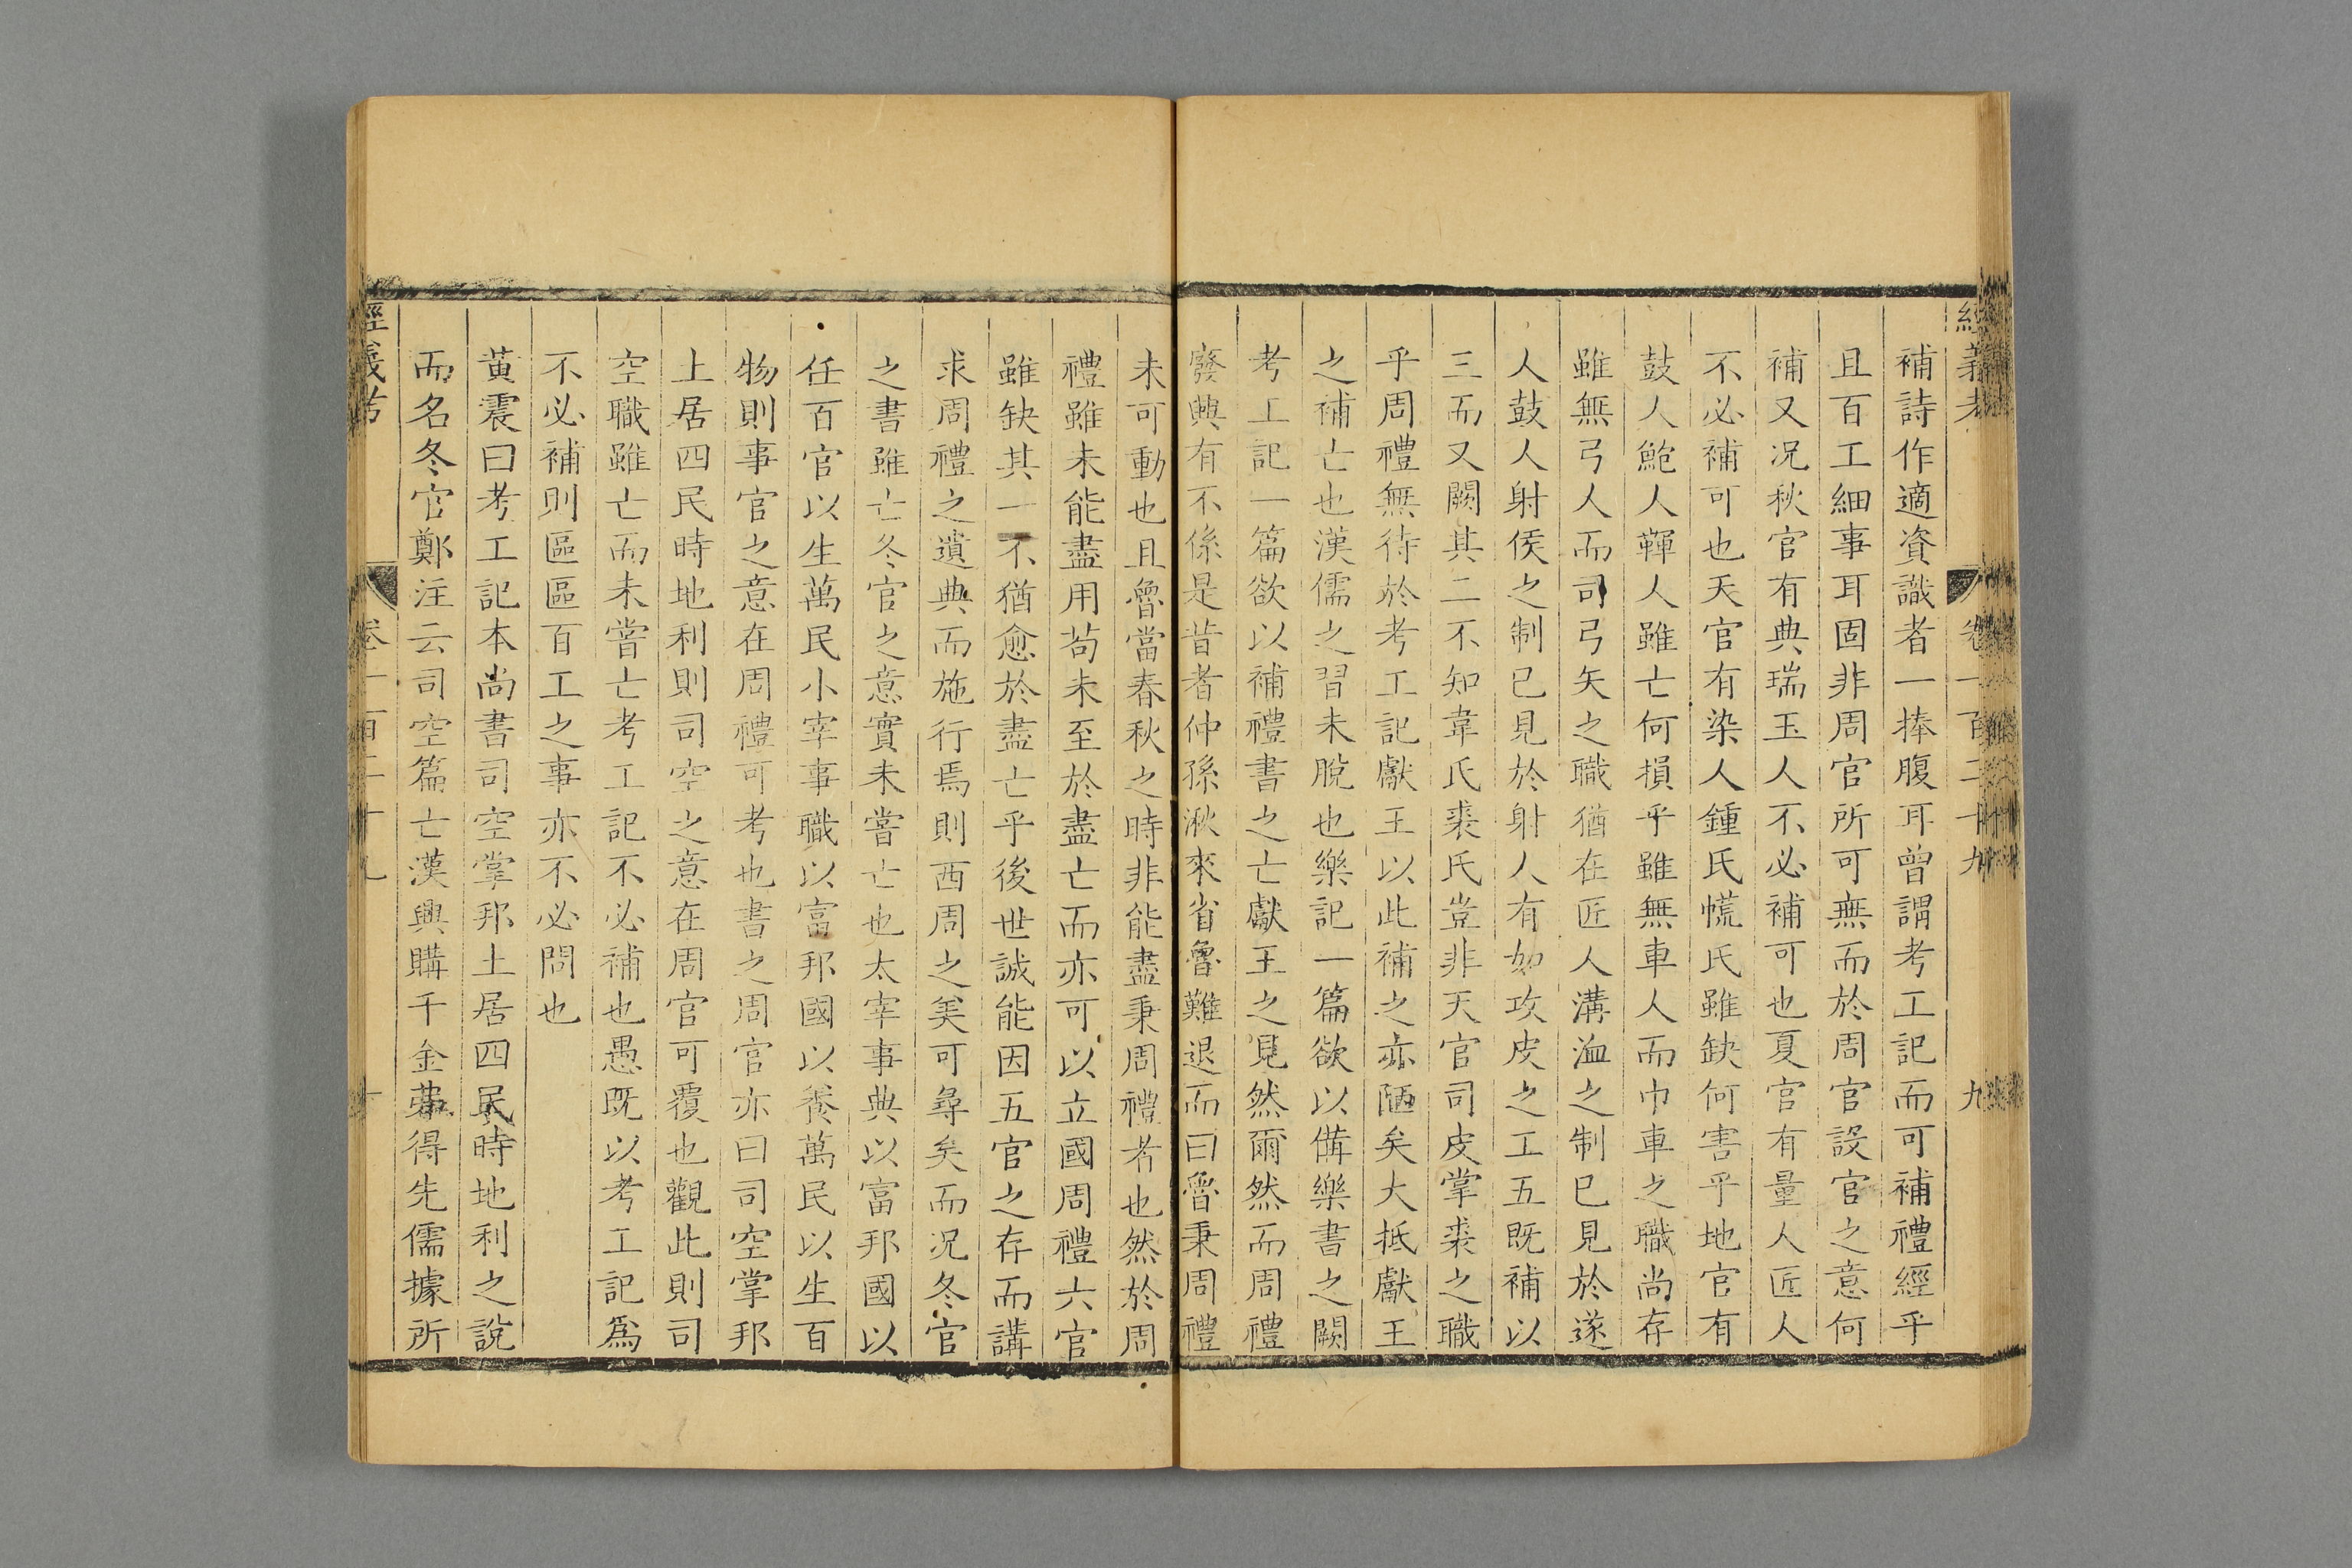 經義考 卷一百二十九 九
補詩作適資識者一捧腹耳曾謂考工記而可補禮經乎
且百工細事耳固非周官所可無而於周官設官之意何
補又况秋官有典瑞玉人不必補可也夏官有量人匠人
不必補可也天官有染人鍾氏㡃氏雖缺何害乎地官有
鼓人鮑人韗人雖亡何損乎雖無車人而巾車之職尚存
雖無弓人而司弓矢之職猶在匠人溝洫之制已見於遂
人鼓人射侯之制已見於射人有如攻皮之工五既補以
三而又闕其二不知韋氏裘氏豈非天官司皮掌裘之職
乎周禮無待於考工記獻王以此補之亦陋矣大抵獻王
之補亡也漢儒之習未脫也樂記一篇欲以備樂書之闕
考工記一篇欲以補禮書之亡獻王之見然爾然而周禮
廢興有不係是昔者仲孫湫來省魯難退而曰魯秉周禮
未可動也且魯當春秋之時非能盡秉周禮者也然於周
禮雖未能盡用茍未至於盡亡而亦可以立國周禮六官
雖缺其一不猶愈於盡亡乎後世誠能因五官之存而講
求周禮之遺典而施行焉則西周之美可尋矣而况冬官
之書雖亡冬官之意實未嘗亡也太宰事典以富邦國以
任百官以生萬民小宰事職以富邦國以養萬民以生百
物則事官之意在周禮可考也書之周官亦曰司空掌邦
土居四民時地利則司空之意在周官可覆也觀此則司
空職雖亡而未嘗亡考工記不必補也愚既以考工記為
不必補則區區百工之事亦不必問也
黃震曰考工記本尚書司空掌邦土居四民時地利之說
而名冬官鄭注云司空篇亡漢興購千金弗得先儒據所
經義考 卷一百二十九 十